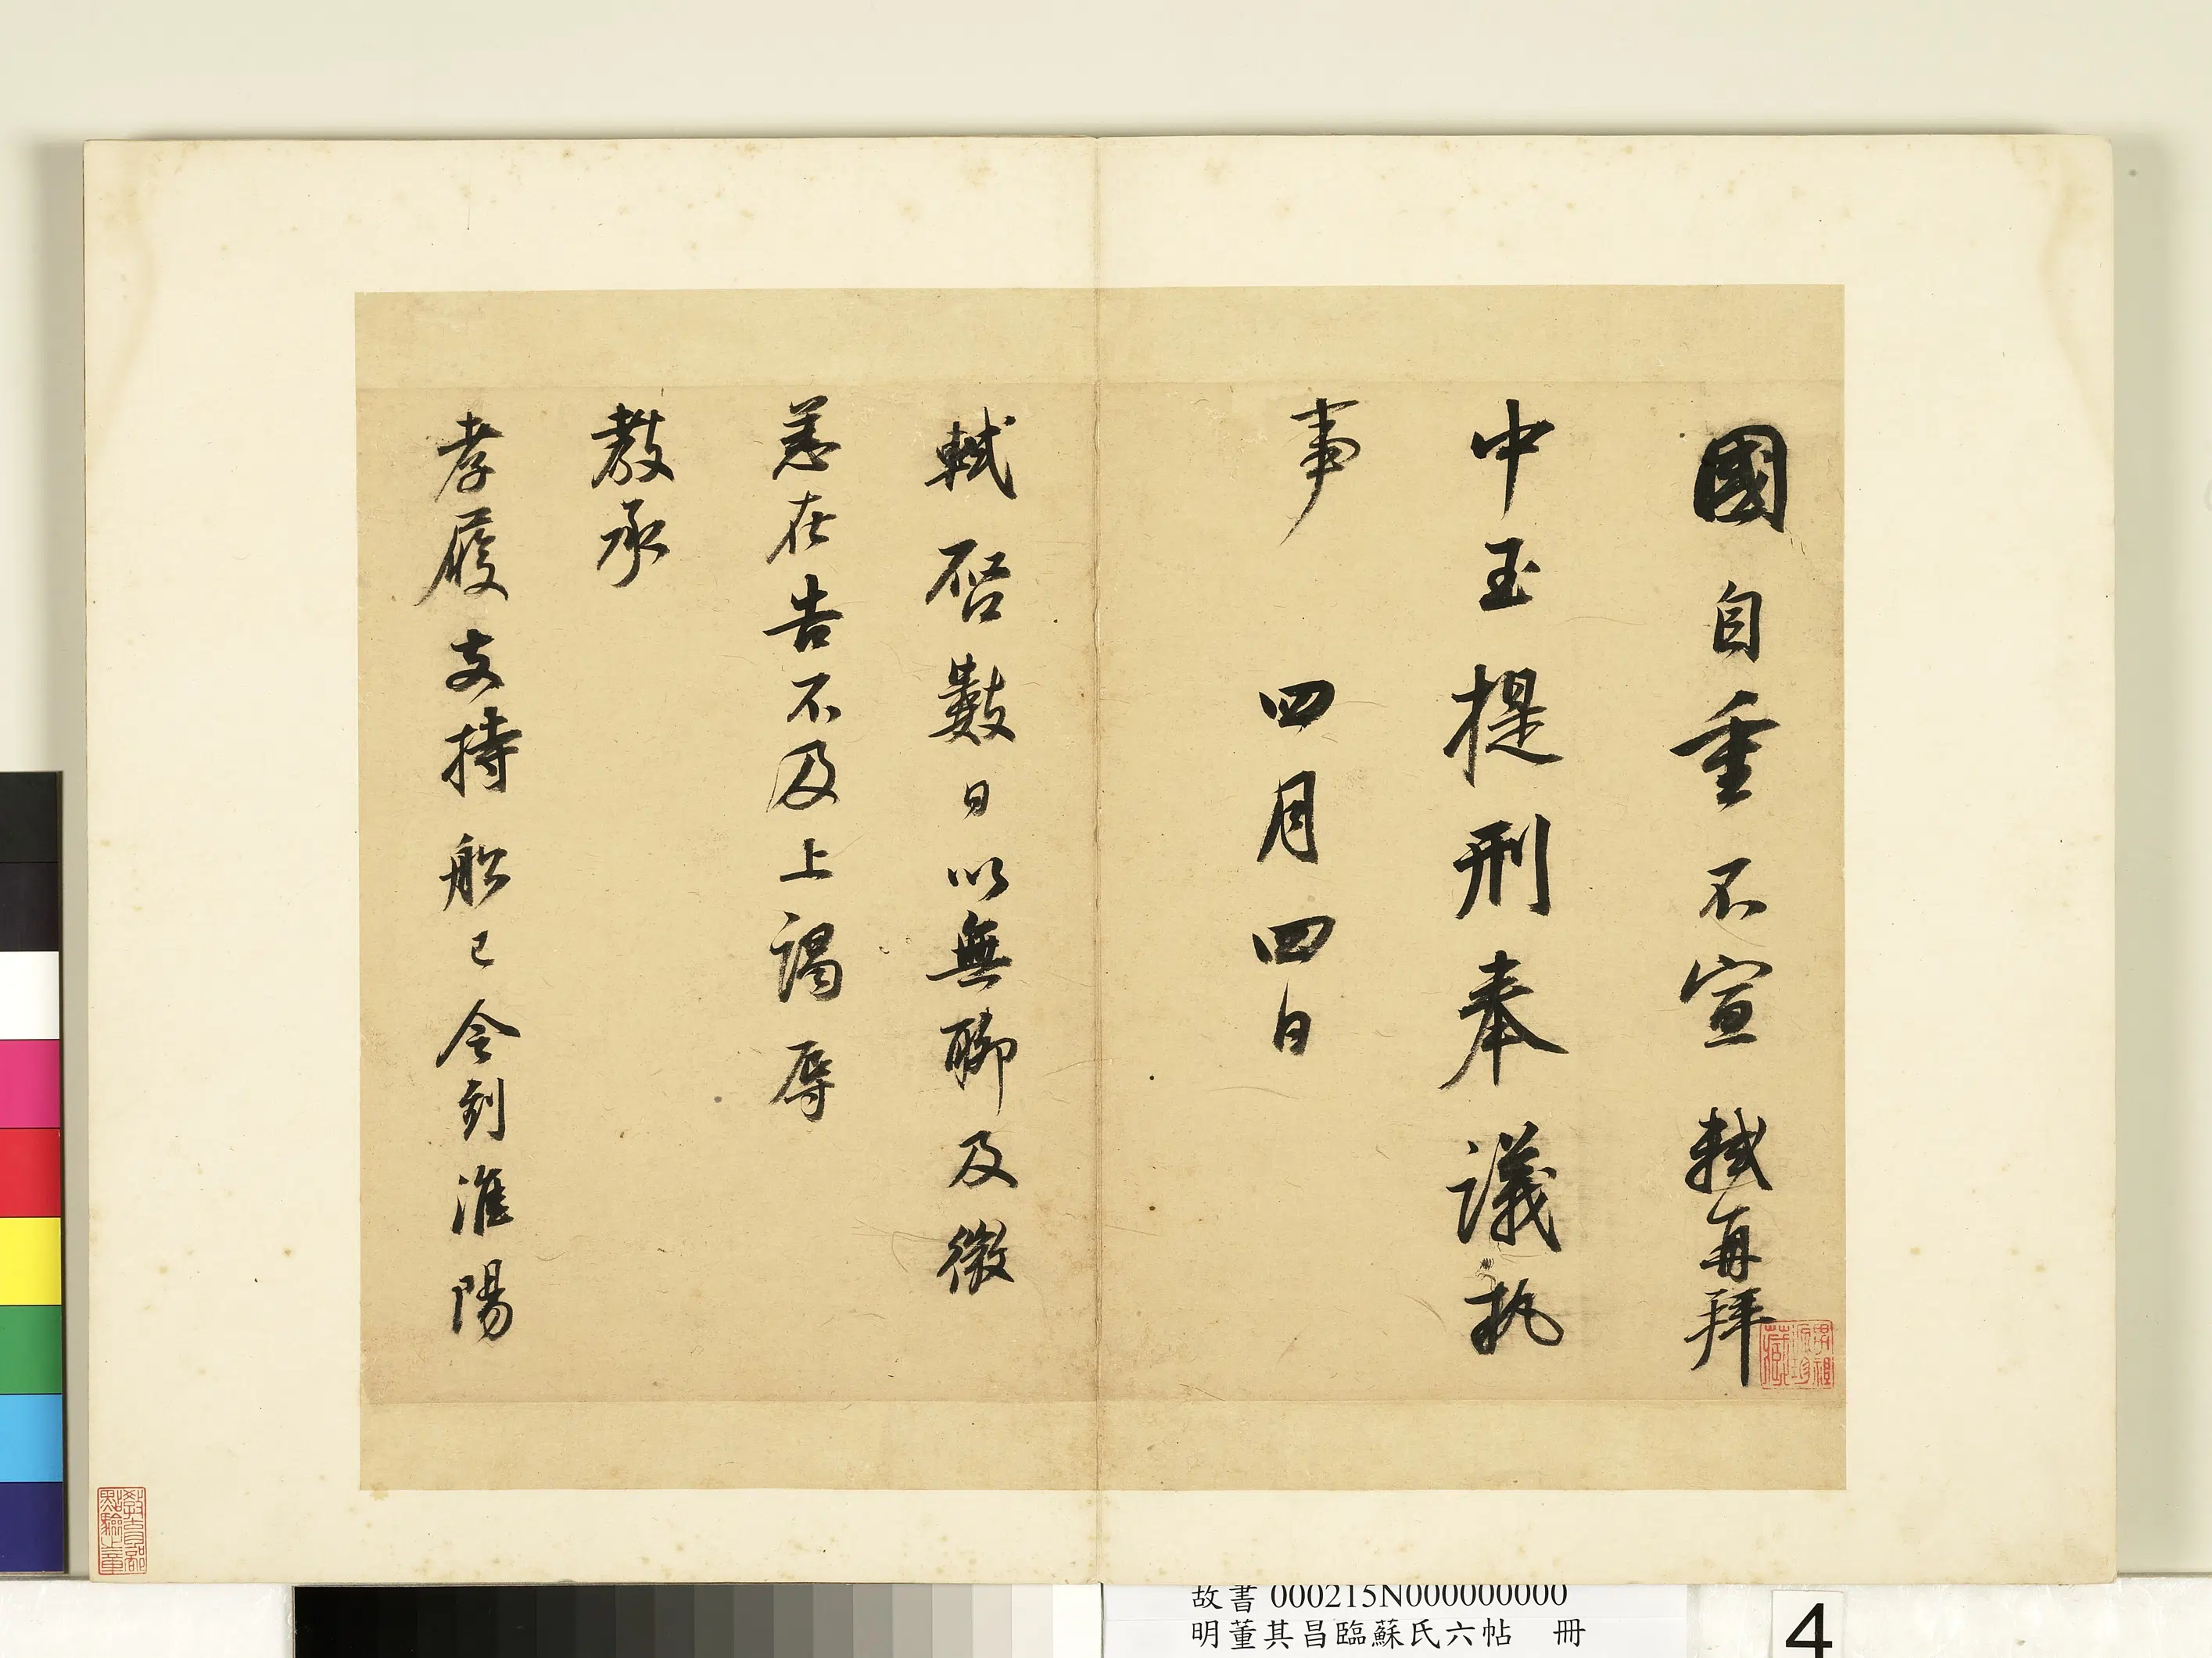 國自重不宣軾再拜
中玉提刑奉議執
事　四月四日
軾啓數日以無聊及微
恙在告不及上謁辱
教承
孝履支持船已令刻淮陽
教育部點驗之章
故書 000215N000000000
明董其昌臨蘇氏六帖　冊
4